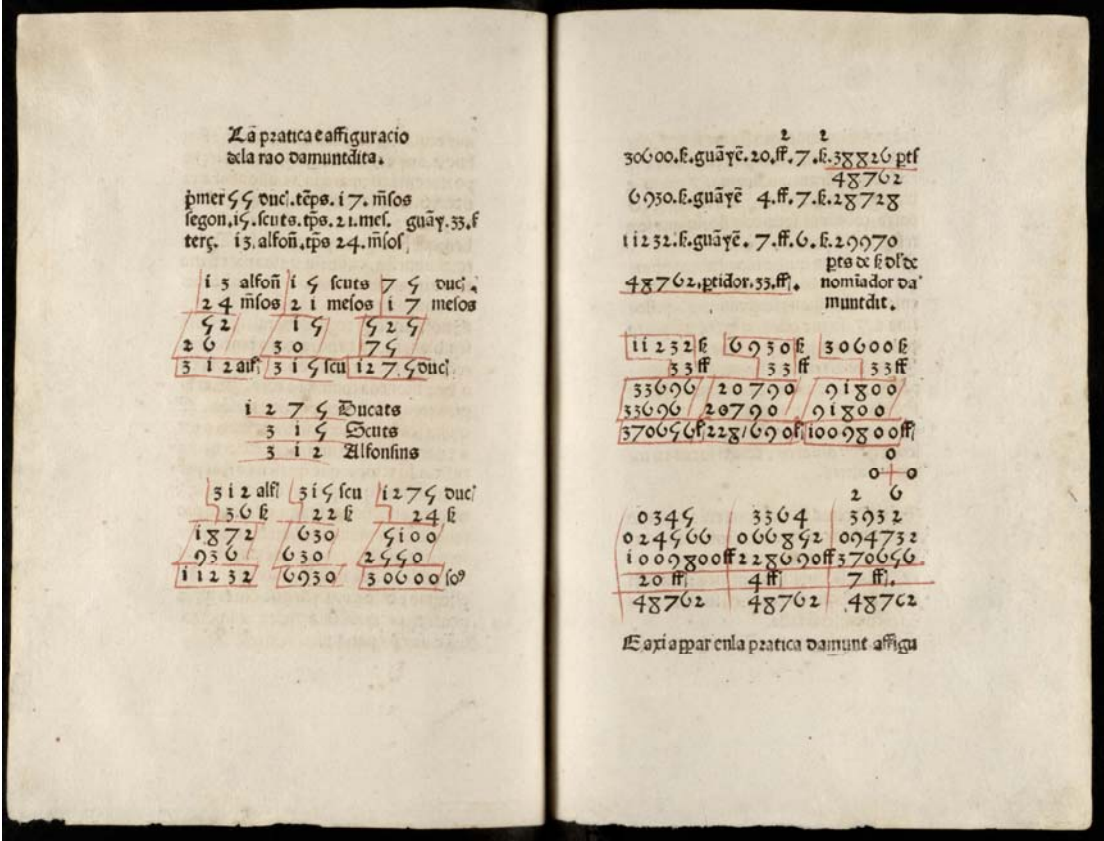 La pratica e affiguracio
dela rao damuntdita.
pmer 55 duc.tēps. i 7. mīsos
segon. i5. scuts. tps. 21. mes. guāy. 33. f
terç. i3. alfoñ. tps 24. mīsos
i 3 alfoñ i 5 scuts 7 5 duc.
2 4 mīsos 2 i mesos i 7 mesos
5 2 i 5 5 2 5
2 6 3 0 7 5
3 i 2 alf 3 i 5 scu i 2 7 5 duc
i 2 7 5 Ducats
3 i 5 Scuts
3 i 2 Alfonsins
3 i 2 alf 3 i 5 scu i 2 7 5 duc
3 6 ẜ 2 2 ẜ 2 4 ẜ
i 8 7 2 6 3 0 5 i 0 0
9 3 6 6 3 0 2 5 5 0
i i 2 3 2 6 9 3 0 3 0 6 0 0 so9
2 2
30600.ẜ.guāyē. 20. ff. 7. ẜ. 38826 pts
48762
6930.ẜ.guāyē 4. ff. 7. ẜ. 28728
i i 232.ẜ.guāyē. 7. ff. 6. ẜ. 29970
pts de ẜ dl' de
48762. ptidor. 33. ff. nomīador da
muntdit.
i i 2 3 2 ẜ 6 9 3 0 ẜ 3 0 6 0 0 ẜ
3 3 ff 3 3 ff 3 3 ff
33696 20790 9i800
33696 20790 9i800
370656 f 228/690 f i009800 ff
0
0 0
2 6
0345 3364 3932
024566 066852 094732
i009800 ff 228690 ff 370656
20 ff 4 ff 7 ff.
48762 48762 48762
E axi appar enla pratica damunt affigu